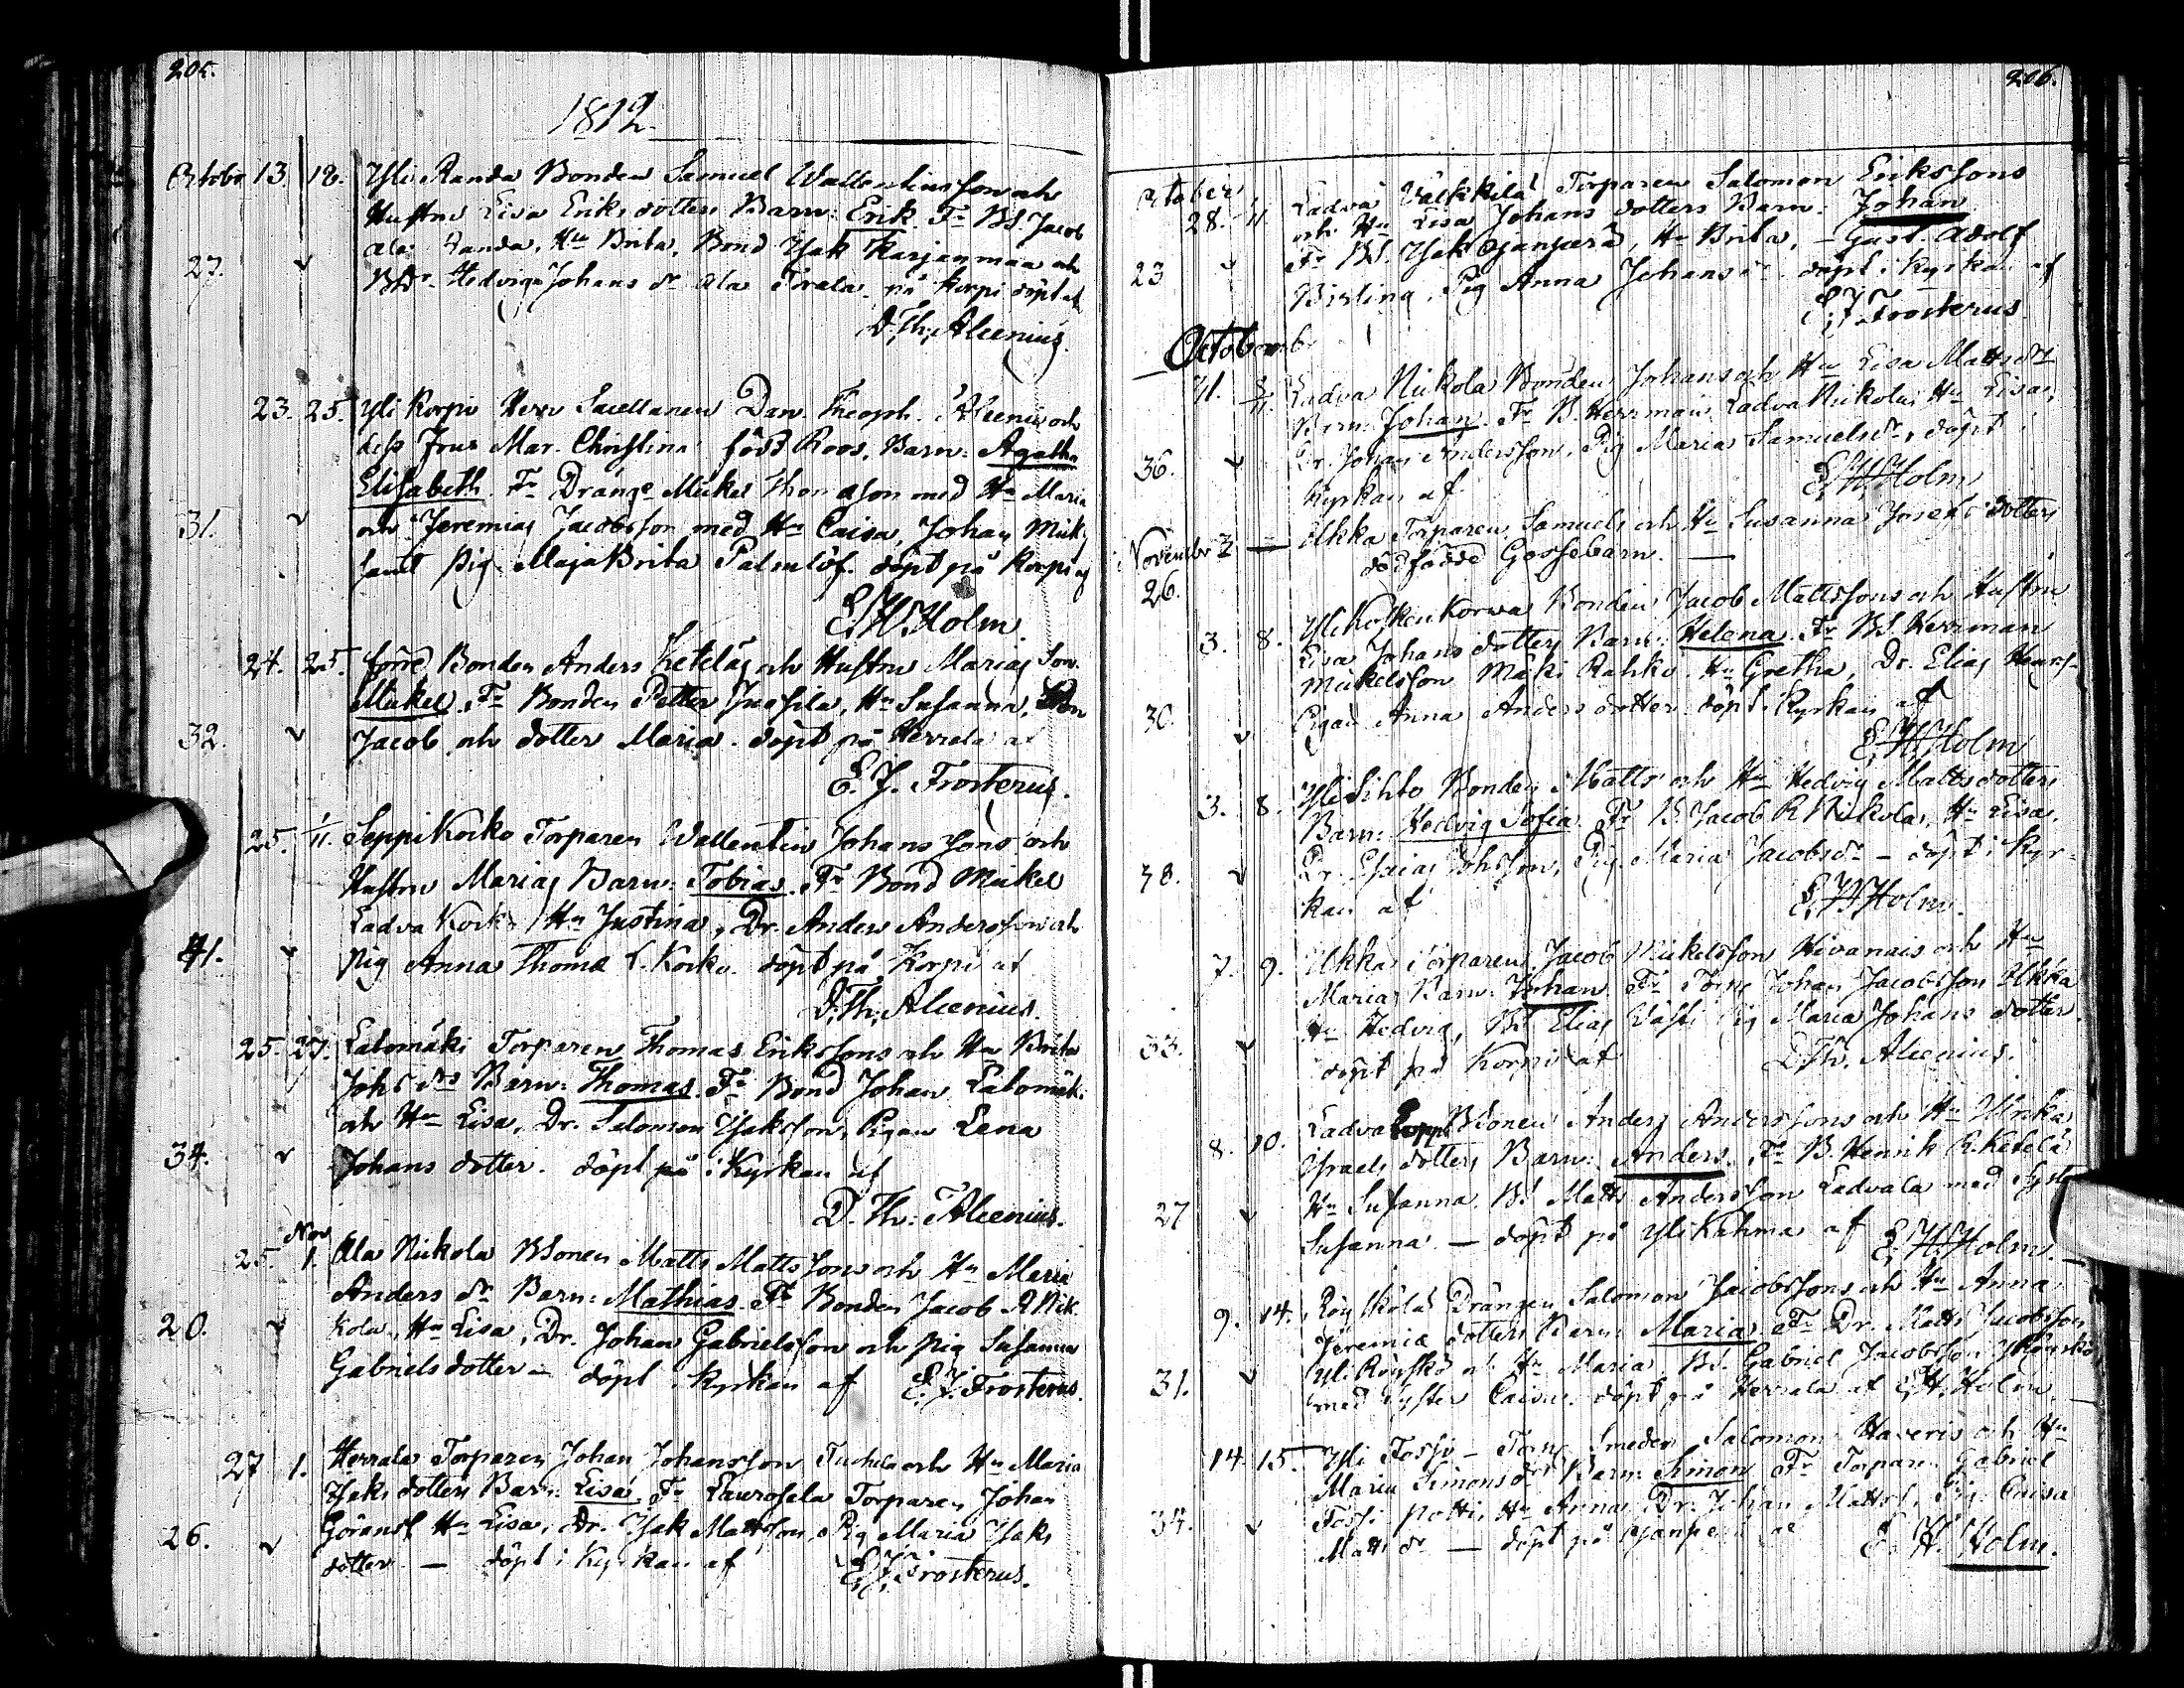 205.
1812
Octobr 13. 18. Yli Randa Bonden Samuel Wallentinsson och
Hustrus Lisa Eriks dotters Barn: Erik. Fr BS. Jacob
Ala Randa, Hu Brita, Bond Isak Karjanmaa och
27. Hedvig Johans dr Ala Tirala på Korpi döpt af
D. Th: Alcenius.
23. 25. Yli Korpi Herr Sacellanen Dan. Theoph. Alcenii och
dess Frus Mar. Christina född Roos, Barn: Agatha
Elisabeth. Fr Dräng Mickel Thomasson med Hu Maria
31. och Jeremias Jacobsson med Hu Caisa, Johan Mick
samt Pig. Maja Brita Palmlöf. döpt på Korpi af
E. H. Holm
24. 25. förre Bonden Anders Ketelas och Hustrus Marias Son
Mickel. Fr Bonden Petter Juosela, Hu Susanna, Son
32. Jacob och dotter Maria. döpt på Herrala af
E. J. Frosterus.
25. 1/11. Seppi Korko Torparen Wallentin Johans sons och
Hustrus Marias Barn: Tobias. Fr Bond Mickel
Ladva Kork. Hu Justina, Dr. Anders Andersson och
41. Pig Anna Thomæ L. Korko. döpt på Korpi af
D. Th: Alcenius.
25. 27. Lalomäki Torparen Thomas Erikssons och Hu Brita
Johs drs Barn: Thomas. Fr Bond Johan Lalomäk.
och Hu Lisa, Dr. Salomon Isaksson, Pigan Lena
34. Johans dotter. döpt på i Kyrkan af
D. Th: Alcenius.
Nov
25. 1. Ala Nickola BSonen Matts Mattssons och Hu Maria
Anders dr Barn: Mathias. Fr Bonden Jacob R Nik
20. kola, Hu Lisa, Dr. Johan Gabrielsson och Pig Susanna
Gabriels dotter — döpt i Kyrkan af E. J. Frosterus.
27 1. Herrala Torparen Johan Johansson och Hu Maria
Isaks dotters Barn: Lisa. Fr Laurosela Torparen Johan
Göransf Hu Lisa, Dr. Isak Mattsson, Pig Maria Isaks
26. dotter — döpt i Kyrkan af E. J. Frosterus.
206.
October
28. 11 Ladva Välkkilä Torparen Salomon Erikssons
och Hu Lisa Johans dotters Barn: Johan
Fr BS. Isak Hu Brita, — Gust. Adolf
23 Pig Anna Johans dr döpt i Kyrkan af
E. J. Frosterus
October
31. 8/11. Ladva Nickola Bonden Johans och Hu Lisa Matts drs
Barn: Johan. Fr B. Herrman Ladva Nikola, Hu Lisa,
36. Dr. Johan Andersson, Pig Maria Samuels dr, döpt i
Kyrkan af E. H. Holm
November 2 — Ukka Torparen Samuels och Hu Susanna Josefs dotters
26. dödfödde Gossebarn. —
3. 8. Yli Kosken Korwa Bonden Jacob Mattssons och Hustru
Lisa Johans dotters Barn: Helena. Fr BS Herrman
Mickelsson Mäki Rahko. Hu Gretha, Dr. Elias
30. Pigan Anna Anders dotter. döpt i Kyrkan af
E. H. Holm
3. 8. Yli Sihto Bonden Matts och Hu Hedvig Matts dotters
Barn: Hedvig Sofia. Fr B Jacob R Nikola, Hu Lisa,
38. Dr. Esaias Pig. Maria Jacobs dr — döpt i Kyr-
kan af E. H. Holm.
7. 9. Ukka Torparen Jacob Mickelsson och Hu
Marias Barn: Johan. Fr Johan Jacobsson Ukka
Hu Hedvig, BS Elias Pig Maria Johans dotter
33. döpt på Korpi af D. Th. Alcenius.
8. 10. Ladva BSonen Anders Anderssons och Hu Ulrika
Israels dotters Barn: Anders. Fr B. Henrik R. Ketelä
27 Hu Susanna. BS Matts Andersson Ladvala med Syster
Susanna — döpt på Yli Kahma af E. H. Holm.
9. 14. Drängen Salomon Jacobssons och Hu Anna
Jeremiæ dotters Barn: Maria. Fr Dr. Matts Jacobsson
31. och Hu Maria, BS. Gabriel Jacobsson
med Syster Caisa. döpt på Herrala af E. H. Holm
14. 15. Yli Fossi — Smeden Salomon Haveris och Hu
Maria Simons drs Barn: Simon. Fr Torparen Gabriel
34. Fossi Hu Anna, Dr. Johan Mattsf, Pig. Caisa
Matts dr — döpt på af E. H. Holm.